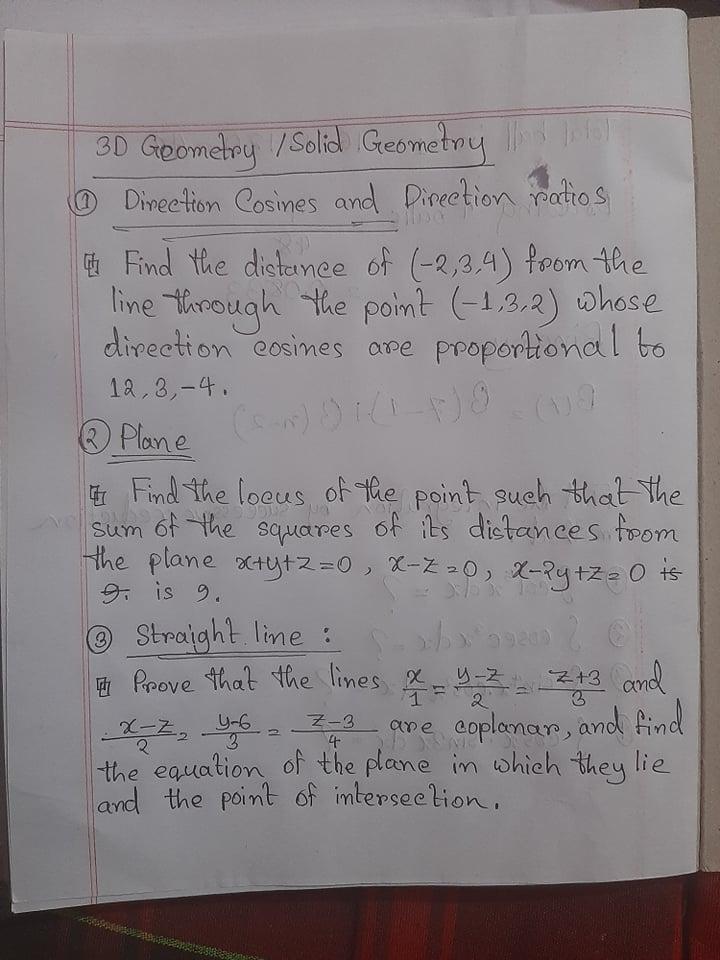 3D Geometry / Solid Geometry
① Direction Cosines and Direction ratios
Find the distance of (-2,3,4) from the
line through the point (-1,3,2) whose
direction cosines are proportional to
12,3,-4.
② Plane
Find the locus of the point such that the
sum of the squares of its distances from
the plane x+y+z=0, x-z=0, x-2y+z=0 is
9. is 9.
③ Straight line :
Prove that the lines x/1 = y-z/2 = z+3/3 and
x-z/2 = y-6/3 = z-3/4 are coplanar, and find
the equation of the plane in which they lie
and the point of intersection.